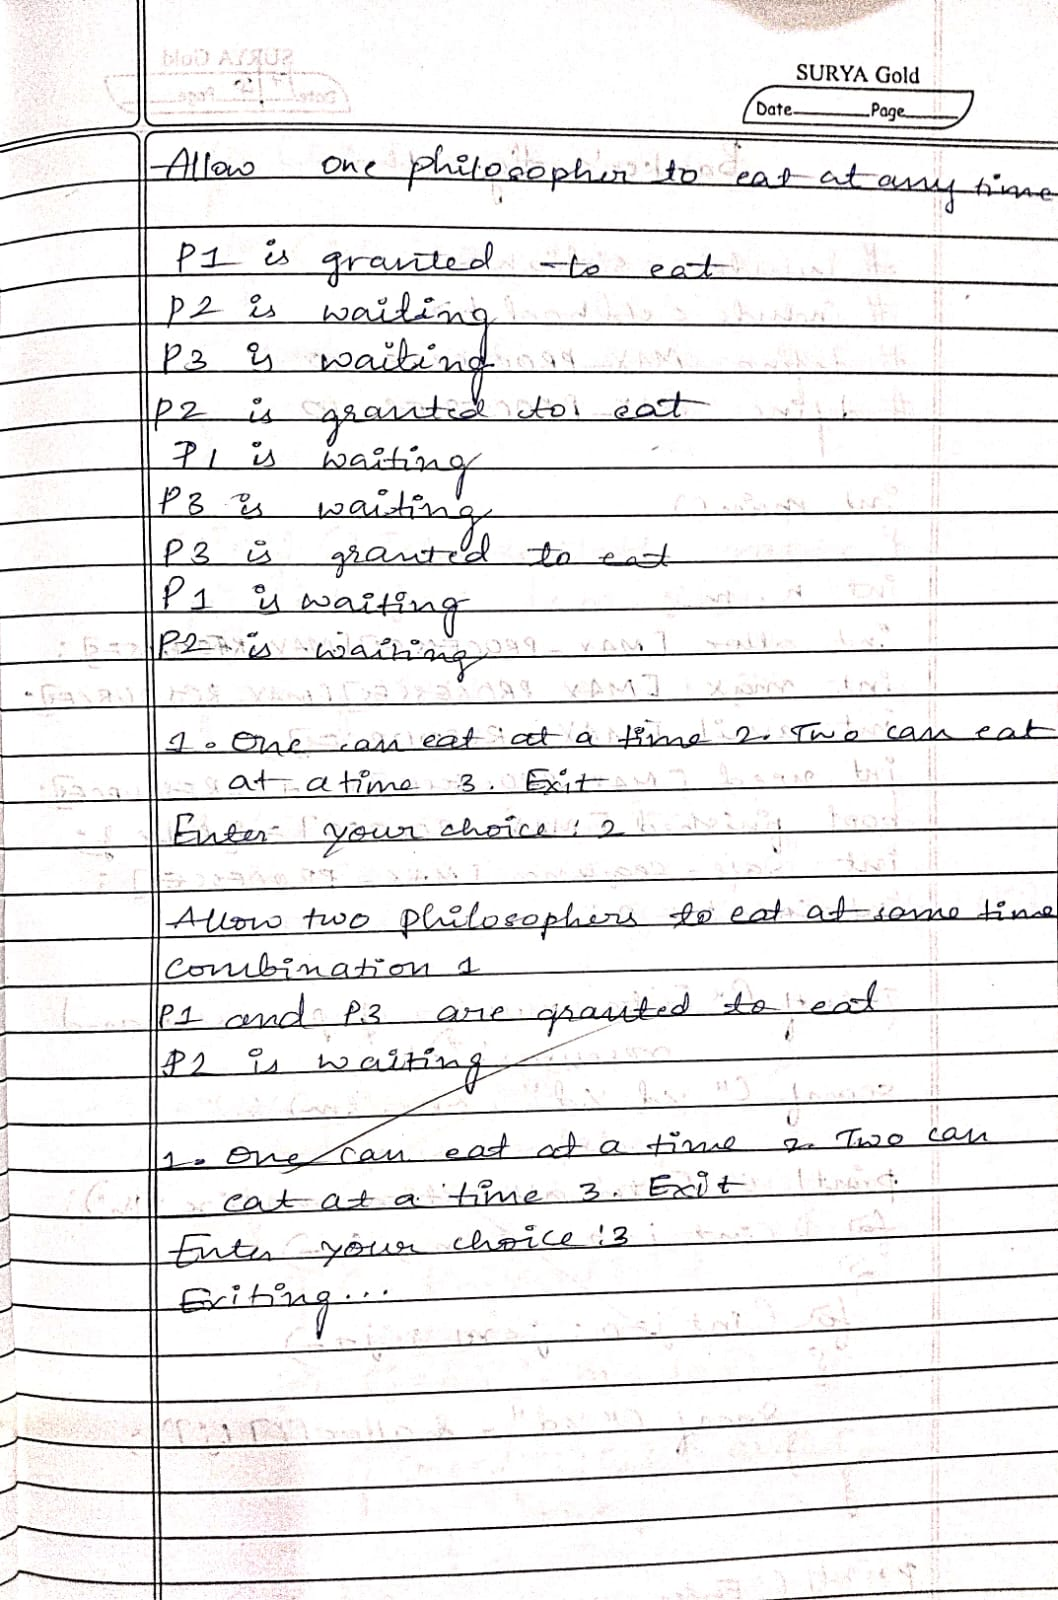 SURYA Gold
Date Page
Allow one philosopher to eat at any time
P1 is granted to eat
P2 is waiting
P3 is waiting
P2 is granted to eat
P1 is waiting
P3 is waiting
P3 is granted to eat
P1 is waiting
P2 is waiting
1. One can eat at a time 2. Two can eat
at a time 3. Exit
Enter your choice: 2
Allow two philosophers to eat at same time
Combination 1
P1 and P3 are granted to eat
P2 is waiting
1. One can eat at a time 2. Two can
eat at a time 3. Exit
Enter your choice: 3
Exiting...